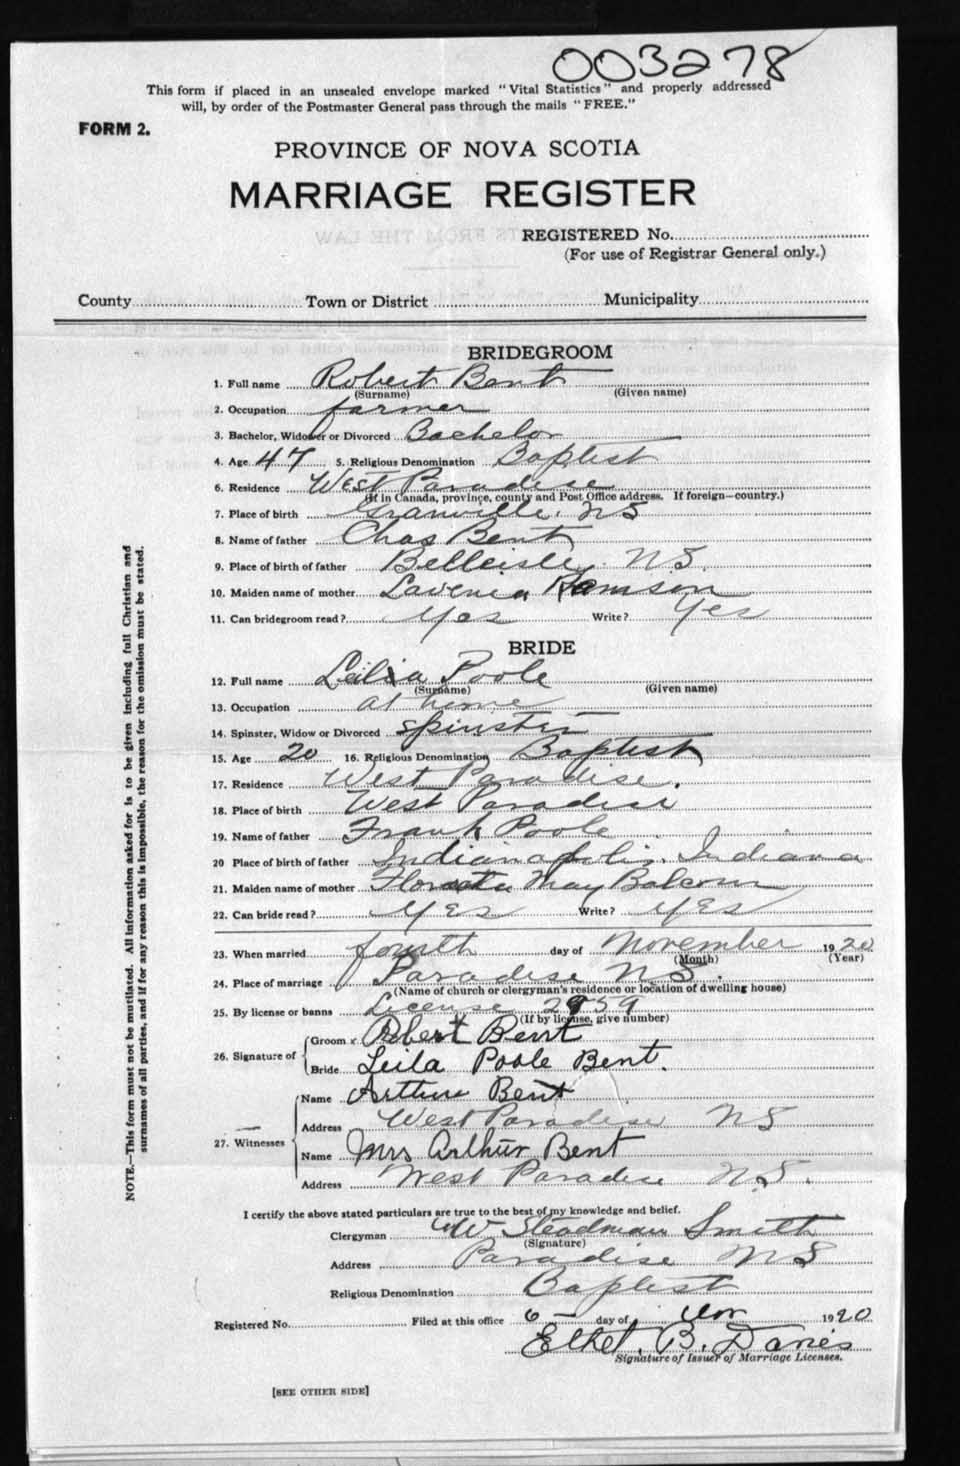 003278
This form if placed in an unsealed envelope marked "Vital Statistics" and properly addressed
will, by order of the Postmaster General pass through the mails "FREE."
FORM 2.
PROVINCE OF NOVA SCOTIA
MARRIAGE REGISTER
REGISTERED No.
(For use of Registrar General only.)
County Town or District Municipality
BRIDEGROOM
1. Full name Robert Bent
(Surname) (Given name)
2. Occupation farmer
3. Bachelor, Widower or Divorced Bachelor
4. Age 47 5. Religious Denomination Baptist
6. Residence West Paradise
(If in Canada, province, county and Post Office address. If foreign—country.)
7. Place of birth Granville. NS
8. Name of father Chas Bent
9. Place of birth of father Belleisle NS.
10. Maiden name of mother Lavenia
11. Can bridegroom read? Yes Write? Yes
BRIDE
12. Full name Leila Poole
(Surname) (Given name)
13. Occupation at home
14. Spinster, Widow or Divorced spinster
15. Age 20 16. Religious Denomination Baptist
17. Residence West Paradise.
18. Place of birth West Paradise
19. Name of father Frank Poole
20 Place of birth of father Indianapolis. Indiana
21. Maiden name of mother May Balcom
22. Can bride read? Yes Write? Yes
23. When married fourth day of November 1920
(Month) (Year)
24. Place of marriage Paradise NS.
(Name of church or clergyman's residence or location of dwelling house)
25. By license or banns License 2959
(If by license, give number)
26. Signature of Groom x Robert Bent
Bride Leila Poole Bent.
27. Witnesses Name Arthur Bent
Address West Paradise NS
Name Mrs Arthur Bent
Address West Paradise N.S.
I certify the above stated particulars are true to the best of my knowledge and belief.
Clergyman W Steadman Smith
(Signature)
Address Paradise NS
Religious Denomination Baptist
Registered No. Filed at this office 6 day of Nov 1920
Ethel. B. Davies
Signature of Issuer of Marriage Licenses.
[SEE OTHER SIDE]
NOTE.—This form must not be mutilated. All information asked for is to be given including full Christian and
surnames of all parties, and if for any reason this is impossible, the reason for the omission must be stated.